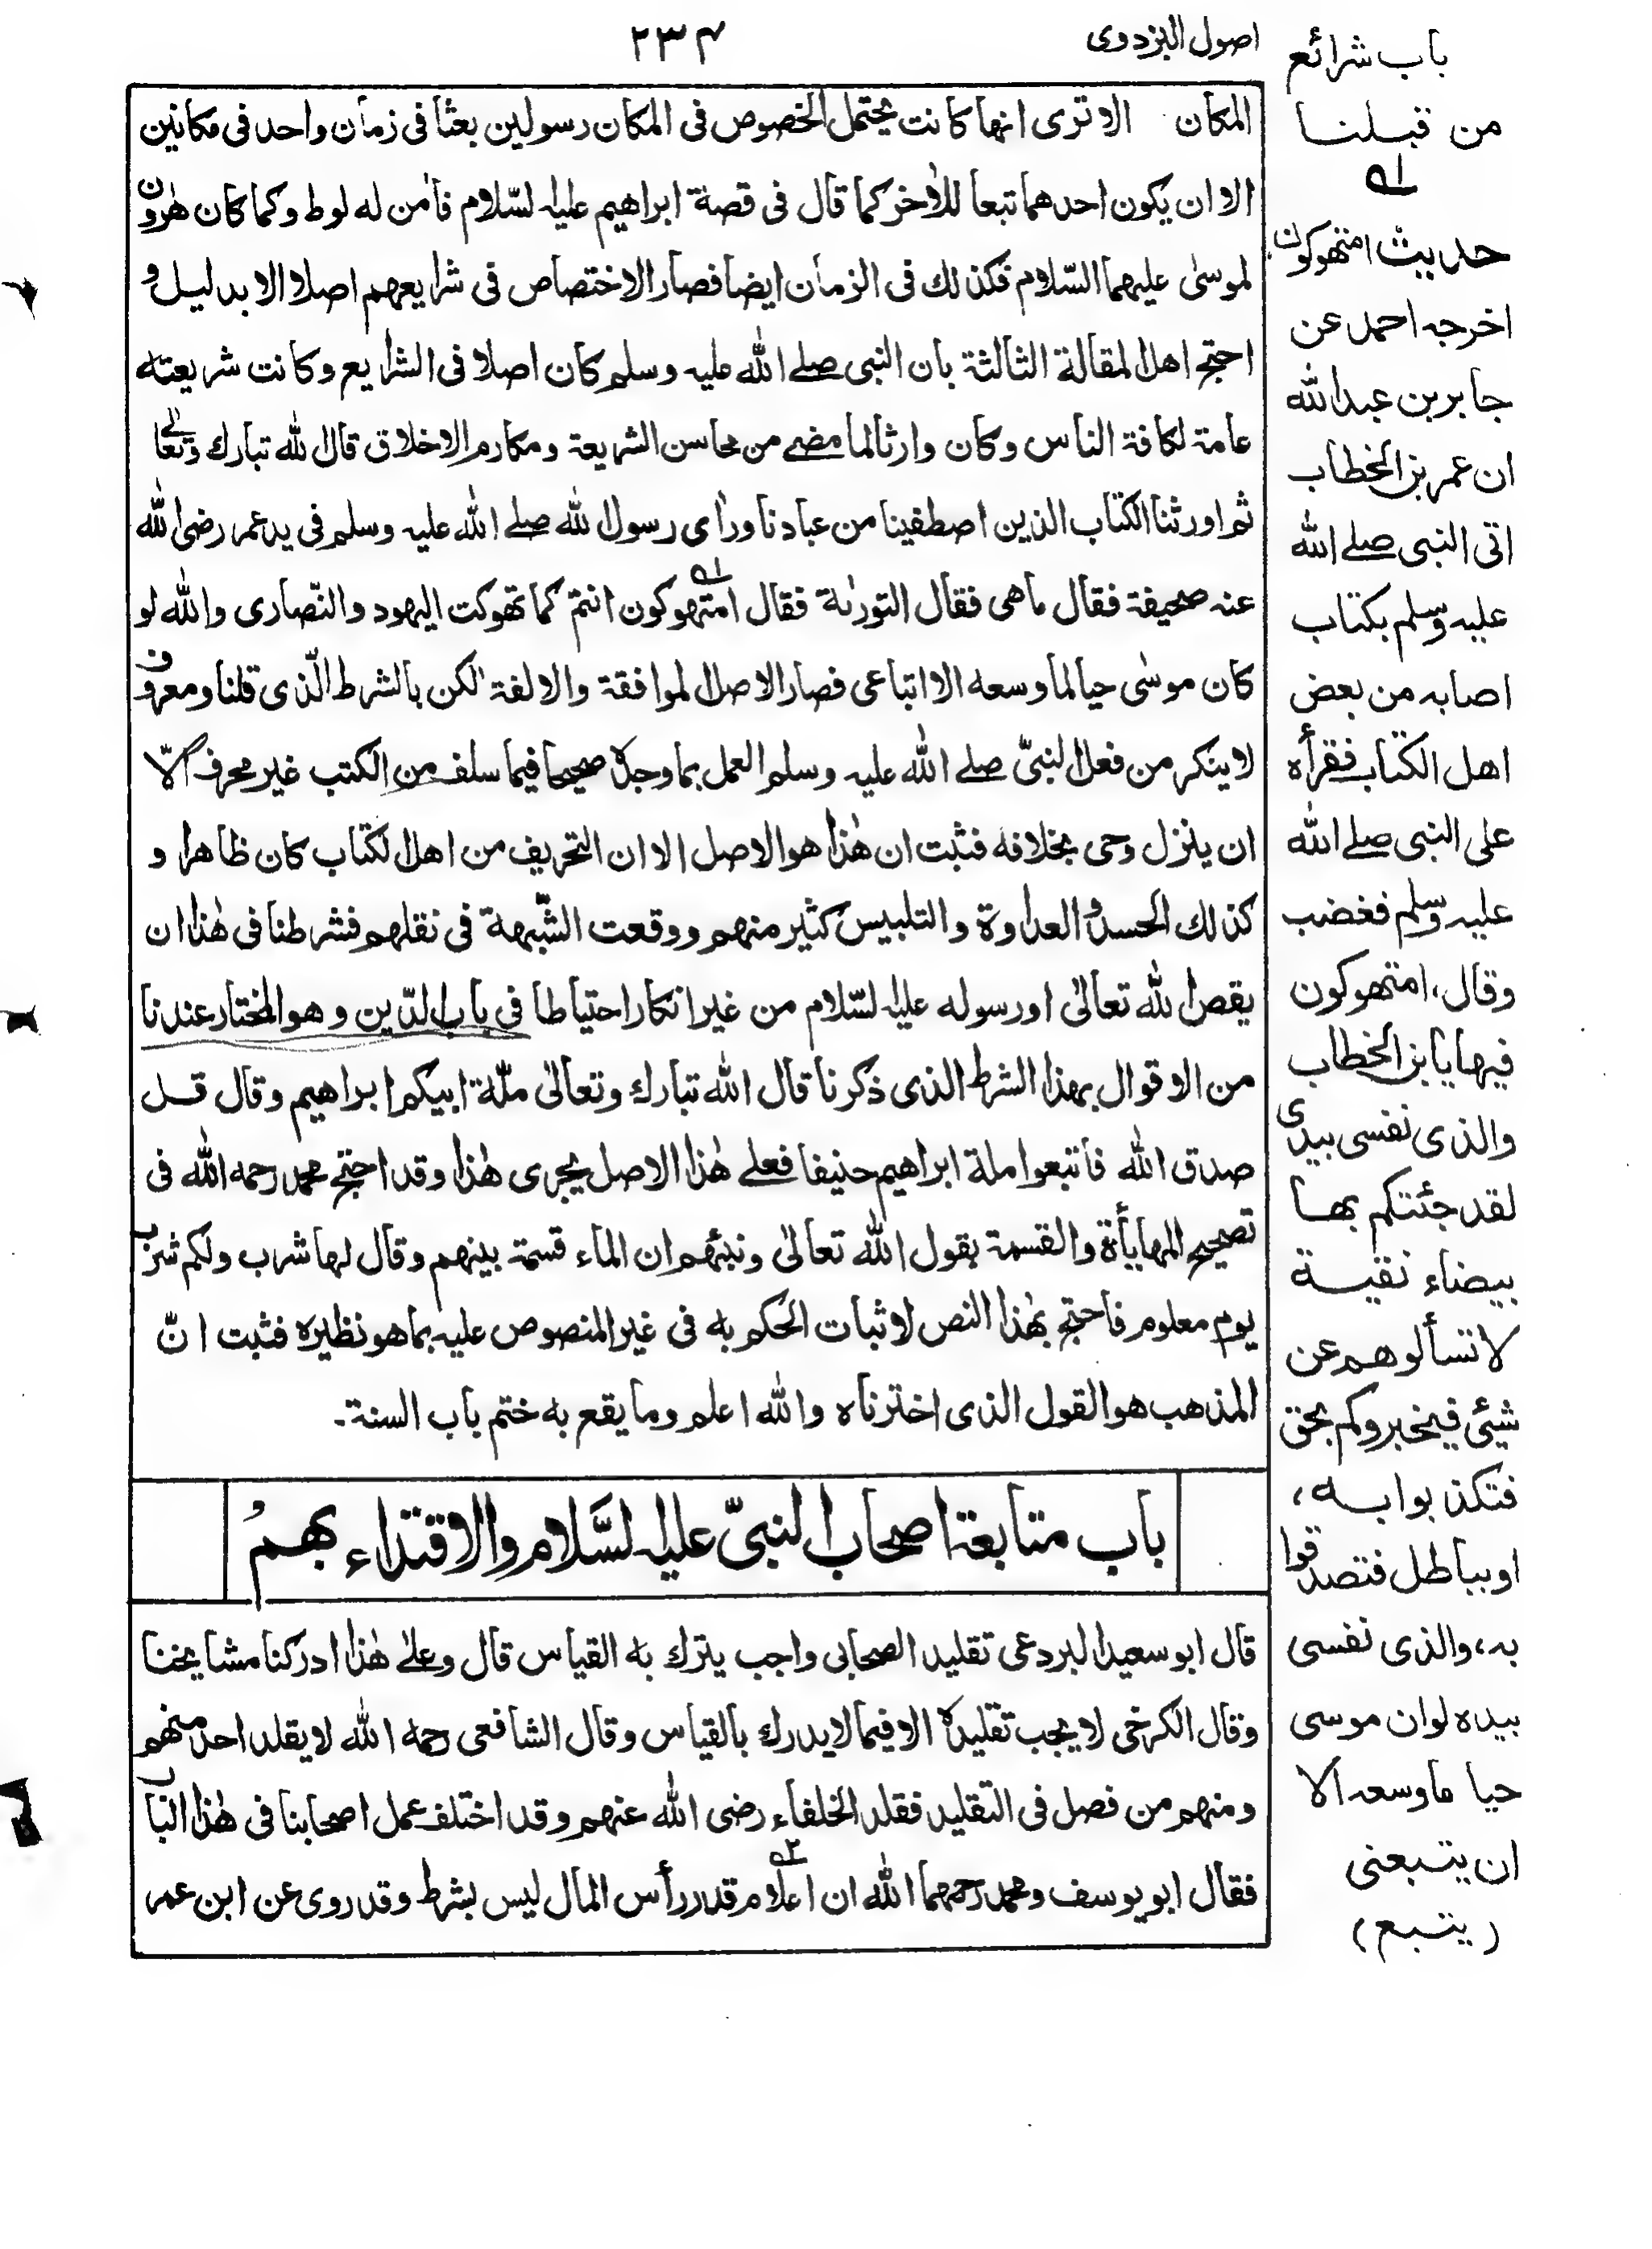 اصول البزدوى
٢٣٤
المكان الا ترى انها كانت يحتمل الخصوص فى المكان رسولين بعثا فى زمان واحد فى مكانين
الا ان يكون احدهما تبعا للاٰخر كما قال فى قصة ابراهيم عليه السّلام فاٰمن له لوط وكما كان هٰرون
لموسىٰ عليهما السّلام فكذلك فى الزمان ايضا فصار الاختصاص فى شرايعهم اصلا الا بدليل و
احتج اهل المقالة الثالثة بان النبى صلے الله عليه وسلم كان اصلا فى الشرايع وكانت شريعته
عامة لكافة الناس وكان وارثا لما مضے من محاسن الشريعة ومكارم الاخلاق قال الله تبارك وتعالٰى
ثم اورثنا الكتاب الذين اصطفينا من عبادنا وراٰى رسول الله صلے الله عليه وسلم فى يد عمر رضى الله
عنه صحيفة فقال ماهى فقال التورٰىة فقال امتهوكون انتم كما تهوكت اليهود والنّصارى والله لو
كان موسٰى حيا لما وسعه الا اتباعى فصار الاصل الموافقة والالفة لٰكن بالشرط الّذى قلنا ومعروف
لا ينكر من فعل النبىّ صلے الله عليه وسلم العمل بما وجده صحيحا فيما سلف من الكتب غير محرف الّا
ان ينزل وحى بخلافه فثبت ان هٰذا هو الاصل الا ان التحريف من اهل الكتاب كان ظاهرا و
كذلك الحسد و العداوة والتلبيس كثير منهم ووقعت الشّبهة فى نقلهم فشرطنا فى هٰذا ان
يقص الله تعالٰى او رسوله عليه السّلام من غير انكار احتياطا فى باب الدّين وهو المختار عندنا
من الاقوال بهذا الشرط الذى ذكرنا قال الله تبارك وتعالٰى ملّة ابيكم ابراهيم وقال قل
صدق الله فاتبعوا ملة ابراهيم حنيفا فعلے هٰذا الاصل يجرى هٰذا وقد احتج محمد رحمه الله فى
تصحيح المهايأة والقسمة بقول الله تعالٰى ونبئهم ان الماء قسمة بينهم وقال لها شرب ولكم شرب
يوم معلوم فاحتج بهٰذا النص لاثبات الحكم به فى غير المنصوص عليه بما هو نظيره فثبت انّ
المذهب هو القول الذى اخترناه والله اعلم وما يقع به ختم باب السنة۔
باب متابعة اصحاب النبىّ عليه السَّلام والاقتداء بهم
قال ابو سعيد البردعى تقليد الصحابى واجب يترك به القياس قال وعلٰے هٰذا ادركنا مشايخنا
وقال الكرخى لا يجب تقليده الا فيما لا يدرك بالقياس وقال الشافعى رحمه الله لا يقلد احد منهم
ومنهم من فصل فى التقليد فقلد الخلفاء رضى الله عنهم وقد اختلف عمل اصحابنا فى هٰذا الباب
فقال ابو يوسف ومحمد رحمهما الله ان اعلام قدر رأس المال ليس بشرط وقد روى عن ابن عمر
باب شرائع
من قبلنا
١ه
حديث امتهوكون
اخرجه احمد عن
جابر بن عبد الله
ان عمر بن الخطاب
اتى النبى صلے الله
عليه وسلم بكتاب
اصابه من بعض
اهل الكتاب فقرأه
على النبى صلے الله
عليه وسلم فغضب
وقال، امتهوكون
فيها يا بن الخطاب
والذى نفسى بيدى
لقد جئتكم بها
بيضاء نقية
لا تسألوهم عن
شيئ فيخبروكم بحق
فتكذبوا به،
او بباطل فتصدقوا
به، والذى نفسى
بيده لو ان موسى
حيا ما وسعه الا
ان يتبعنى
(يتبع)